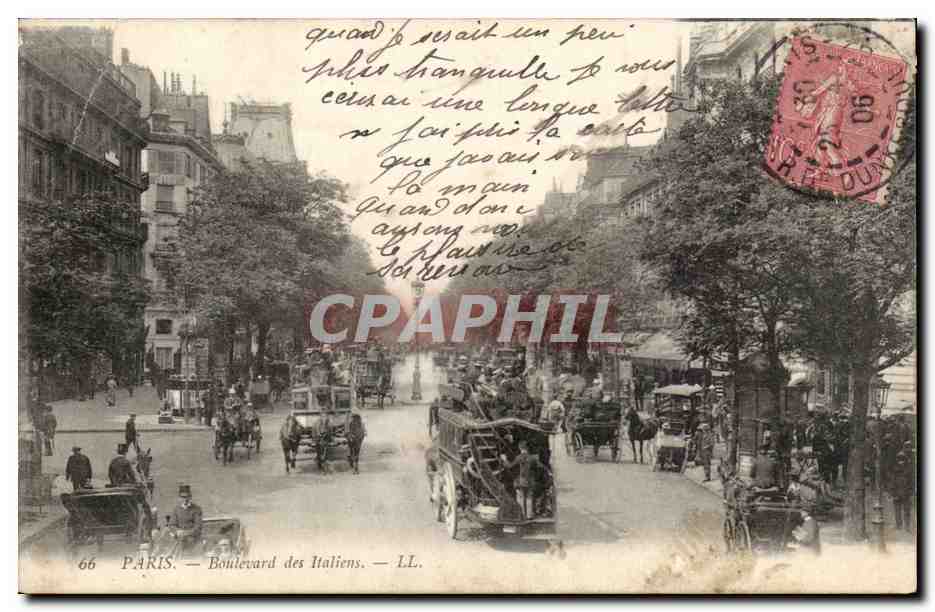 quand je serait un peu
plus tranquille je vous
ecerai une longue lettre
j'ai pris la carte
que javais sou
la main
quand donc
aurons nous
le plaisir de
CPAPHIL
66 PARIS. — Boulevard des Italiens. — LL.